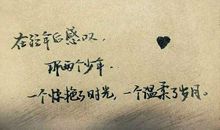 在经年后感叹，
那两个少年，
一个惊艳了时光，一个温柔了岁月。